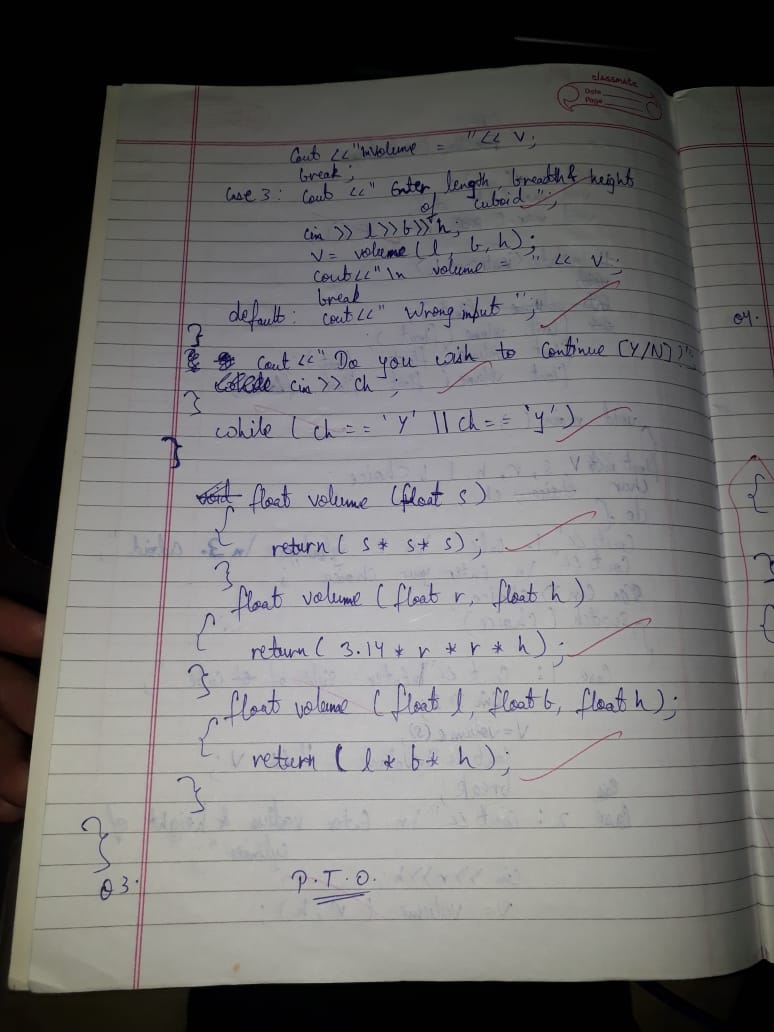 classmate
Date
Page
Cout <<"\nVolume = "<< V;
break;
Case 3: Cout <<" Enter length, breadth & height
of cuboid";
cin >> l>>b>>h;
V= volume (l, b, h);
cout<<"\n volume = " << V;
break
default: cout<<" Wrong input ";
}
cout <<" Do you wish to continue (Y/N)?";
cin >> ch;
}
while (ch == 'Y' || ch == 'y')
}
void float volume (float s)
{
return( s* s* s);
}
float volume (float r, float h)
{
return( 3.14 * r * r * h);
}
float volume (float l, float b, float h);
{
return ( l * b * h);
}
}
Q3.
P.T.O.
Q4.
{
}
{